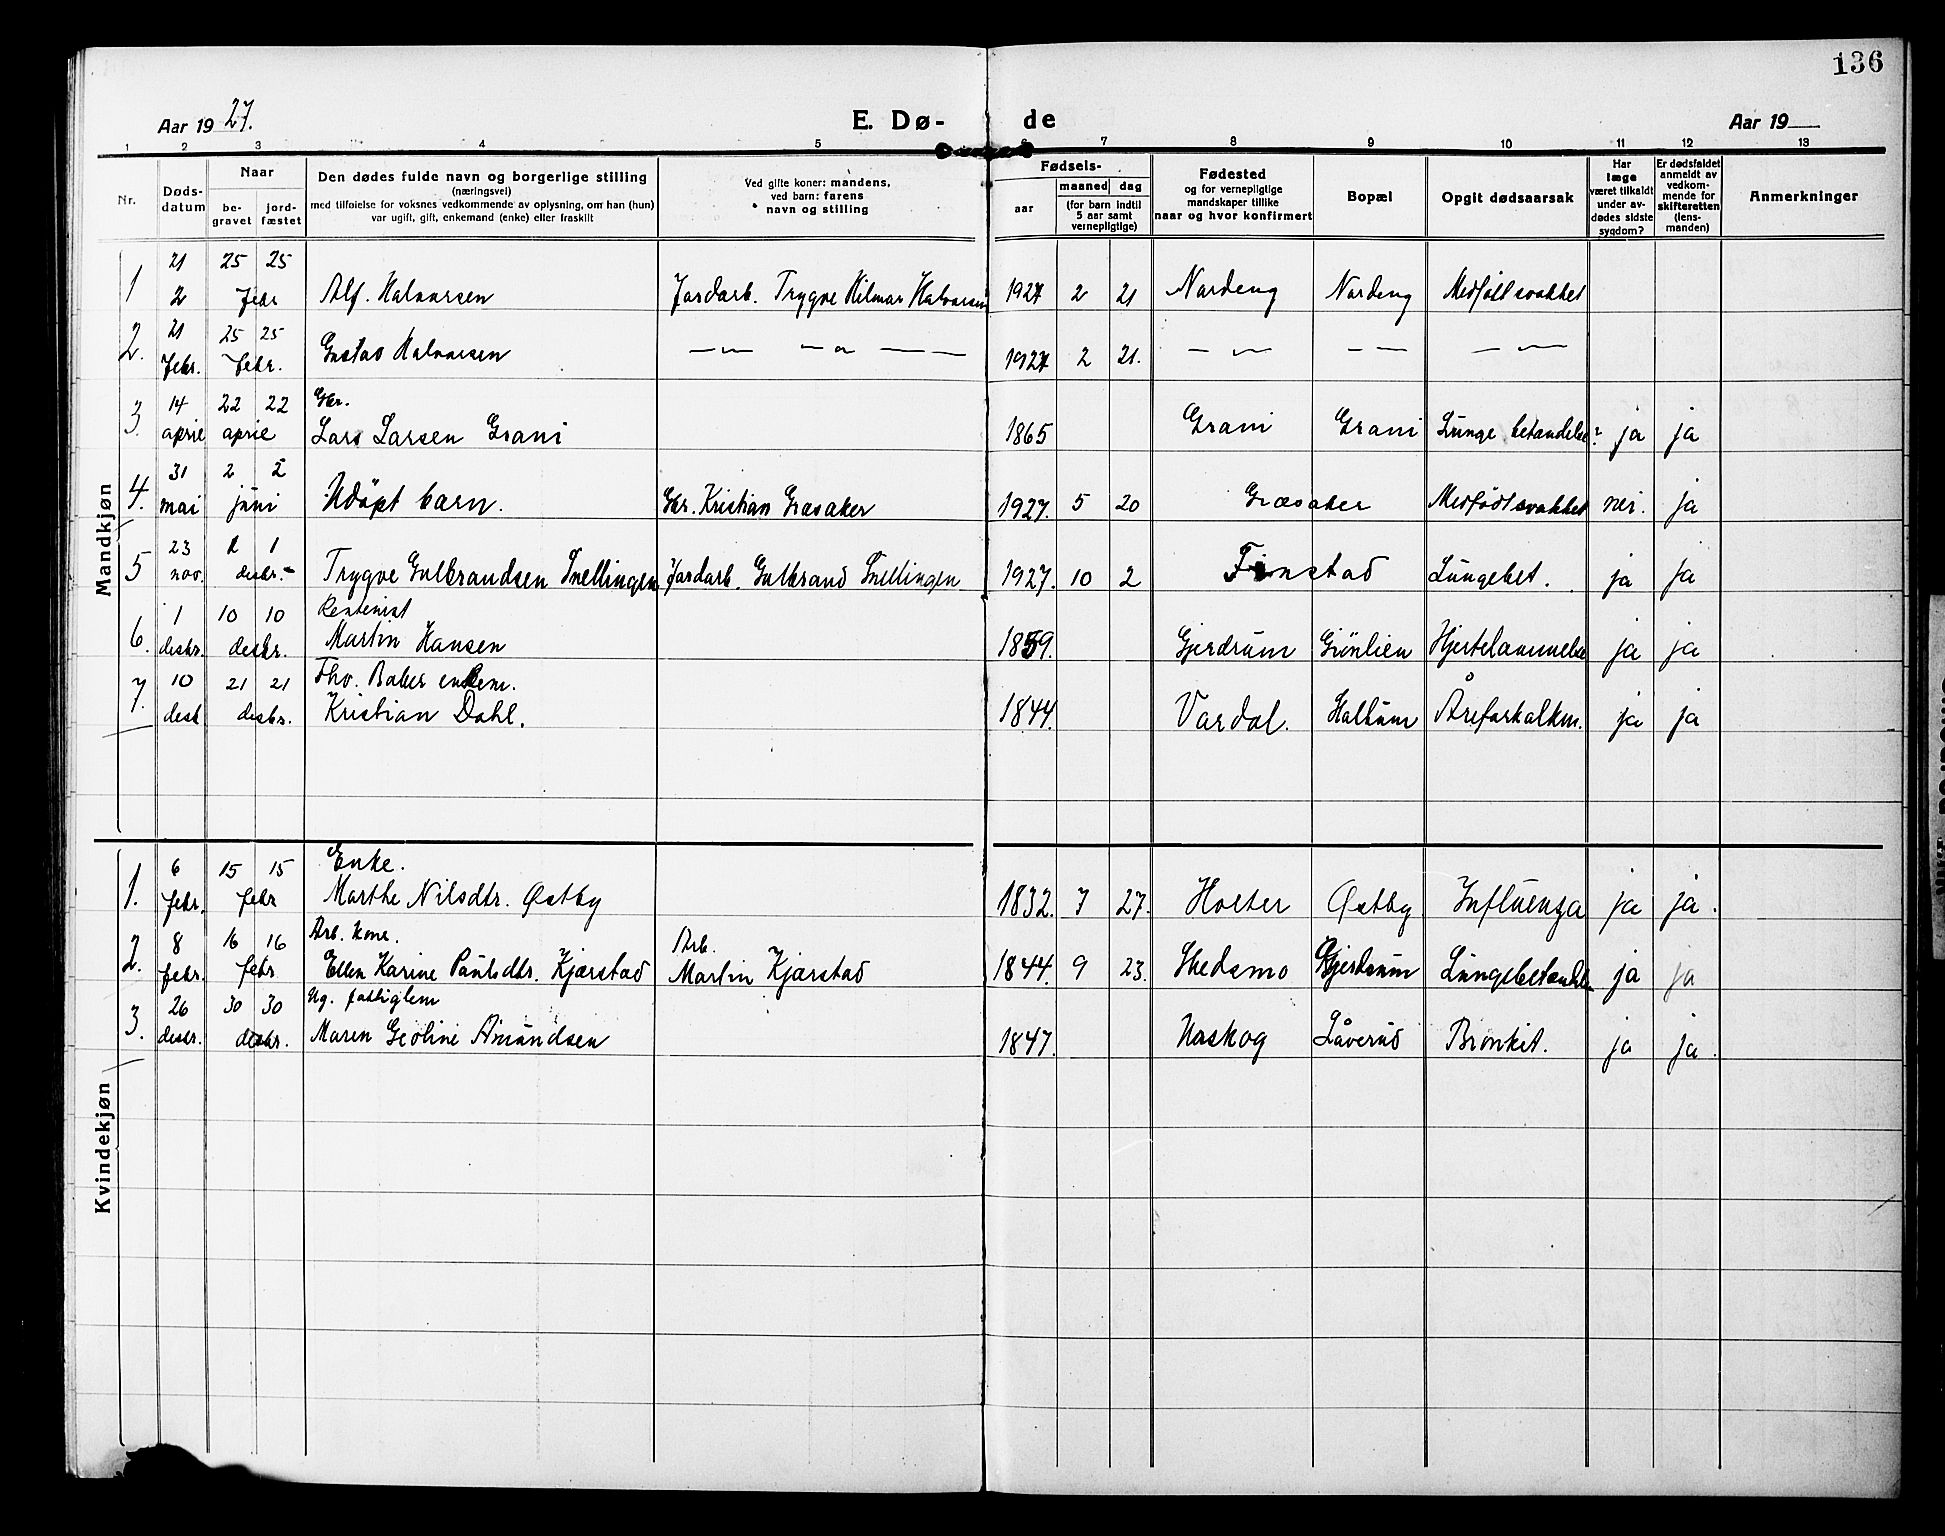 136
Aar 19 27.
E. Dø- de
Aar 19
1 2 3 4 5 6 7 8 9 10 11 12 13
Nr.
Døds-
datum
Naar
be-
gravet
jord-
fæstet
Den dødes fulde navn og borgerlige stilling
(næringsvei)
med tilføielse for voksnes vedkommende av oplysning, om han (hun)
var ugift, gift, enkemand (enke) eller fraskilt
Ved gifte koner: mandens,
ved barn: farens
navn og stilling
Fødsels-
aar
maaned
dag
(for barn indtil
5 aar samt
vernepligtige)
Fødested
og for vernepligtige
mandskaper tillike
naar og hvor konfirmert
Bopæl
Opgit dødsaarsak
Har
læge
været tilkaldt
under av-
dødes sidste
sygdom?
Er dødsfaldet
anmeldt av
vedkom-
mende for
skifteretten
(lens-
manden)
Anmerkninger
Mandkjøn
21 25 25
1 2 Febr Alf. Halvorsen Jordarb. Trygve Hilmar Halvorsen 1927 2 21 Nordeng Nordeng Medfødt svakhet
21 25 25
2. Febr. Febr. Gustav Halvorsen — " — " — — 1927 2 21. — " — — — — " —
14 22 22 Gbr.
3. april april Lars Larsen Grani 1865 Grani Grani Lunge betændelse? ja ja
31 2 2
4. mai juni Udøpt barn. Gbr. Kristian Græsaker 1927. 5 20 Græsaker Medfødt svakhet nei. ja
23 1 1
5 nov. desbr. Trygve Gulbrandsen Snellingen Jordarb. Gulbrand Snellingen 1927. 10 2 Finstad Lungebet. ja ja
1 10 10 Rentenist
6. desbr. desbr. Martin Hansen 1859. Gjerdrum Grønlien Hjertelammelse ja ja
10 21 21 Fhv. Baker enkem.
7. desb desbr. Kristian Dahl. 1844. Vardal. Holtum Åreforkalkn. ja ja
Kvindekjøn
6 15 15 Enke.
1. febr. febr Marthe Nilsdtr. Østby 1832. 7 27. Holter Østby Influenza ja ja.
8 16 16 Arb. kone. Arb.
2. febr. febr Ellen Karine Paulsdtr. Kjærstad Martin Kjærstad 1844. 9 23. Skedsmo Gjerdrum Lungebetændelse ja ja
26 30 30 Ug. fattiglem
3. desbr. desbr. Maren Geoline Amundsen 1847. Urskog Låverud Bronkit. ja ja.